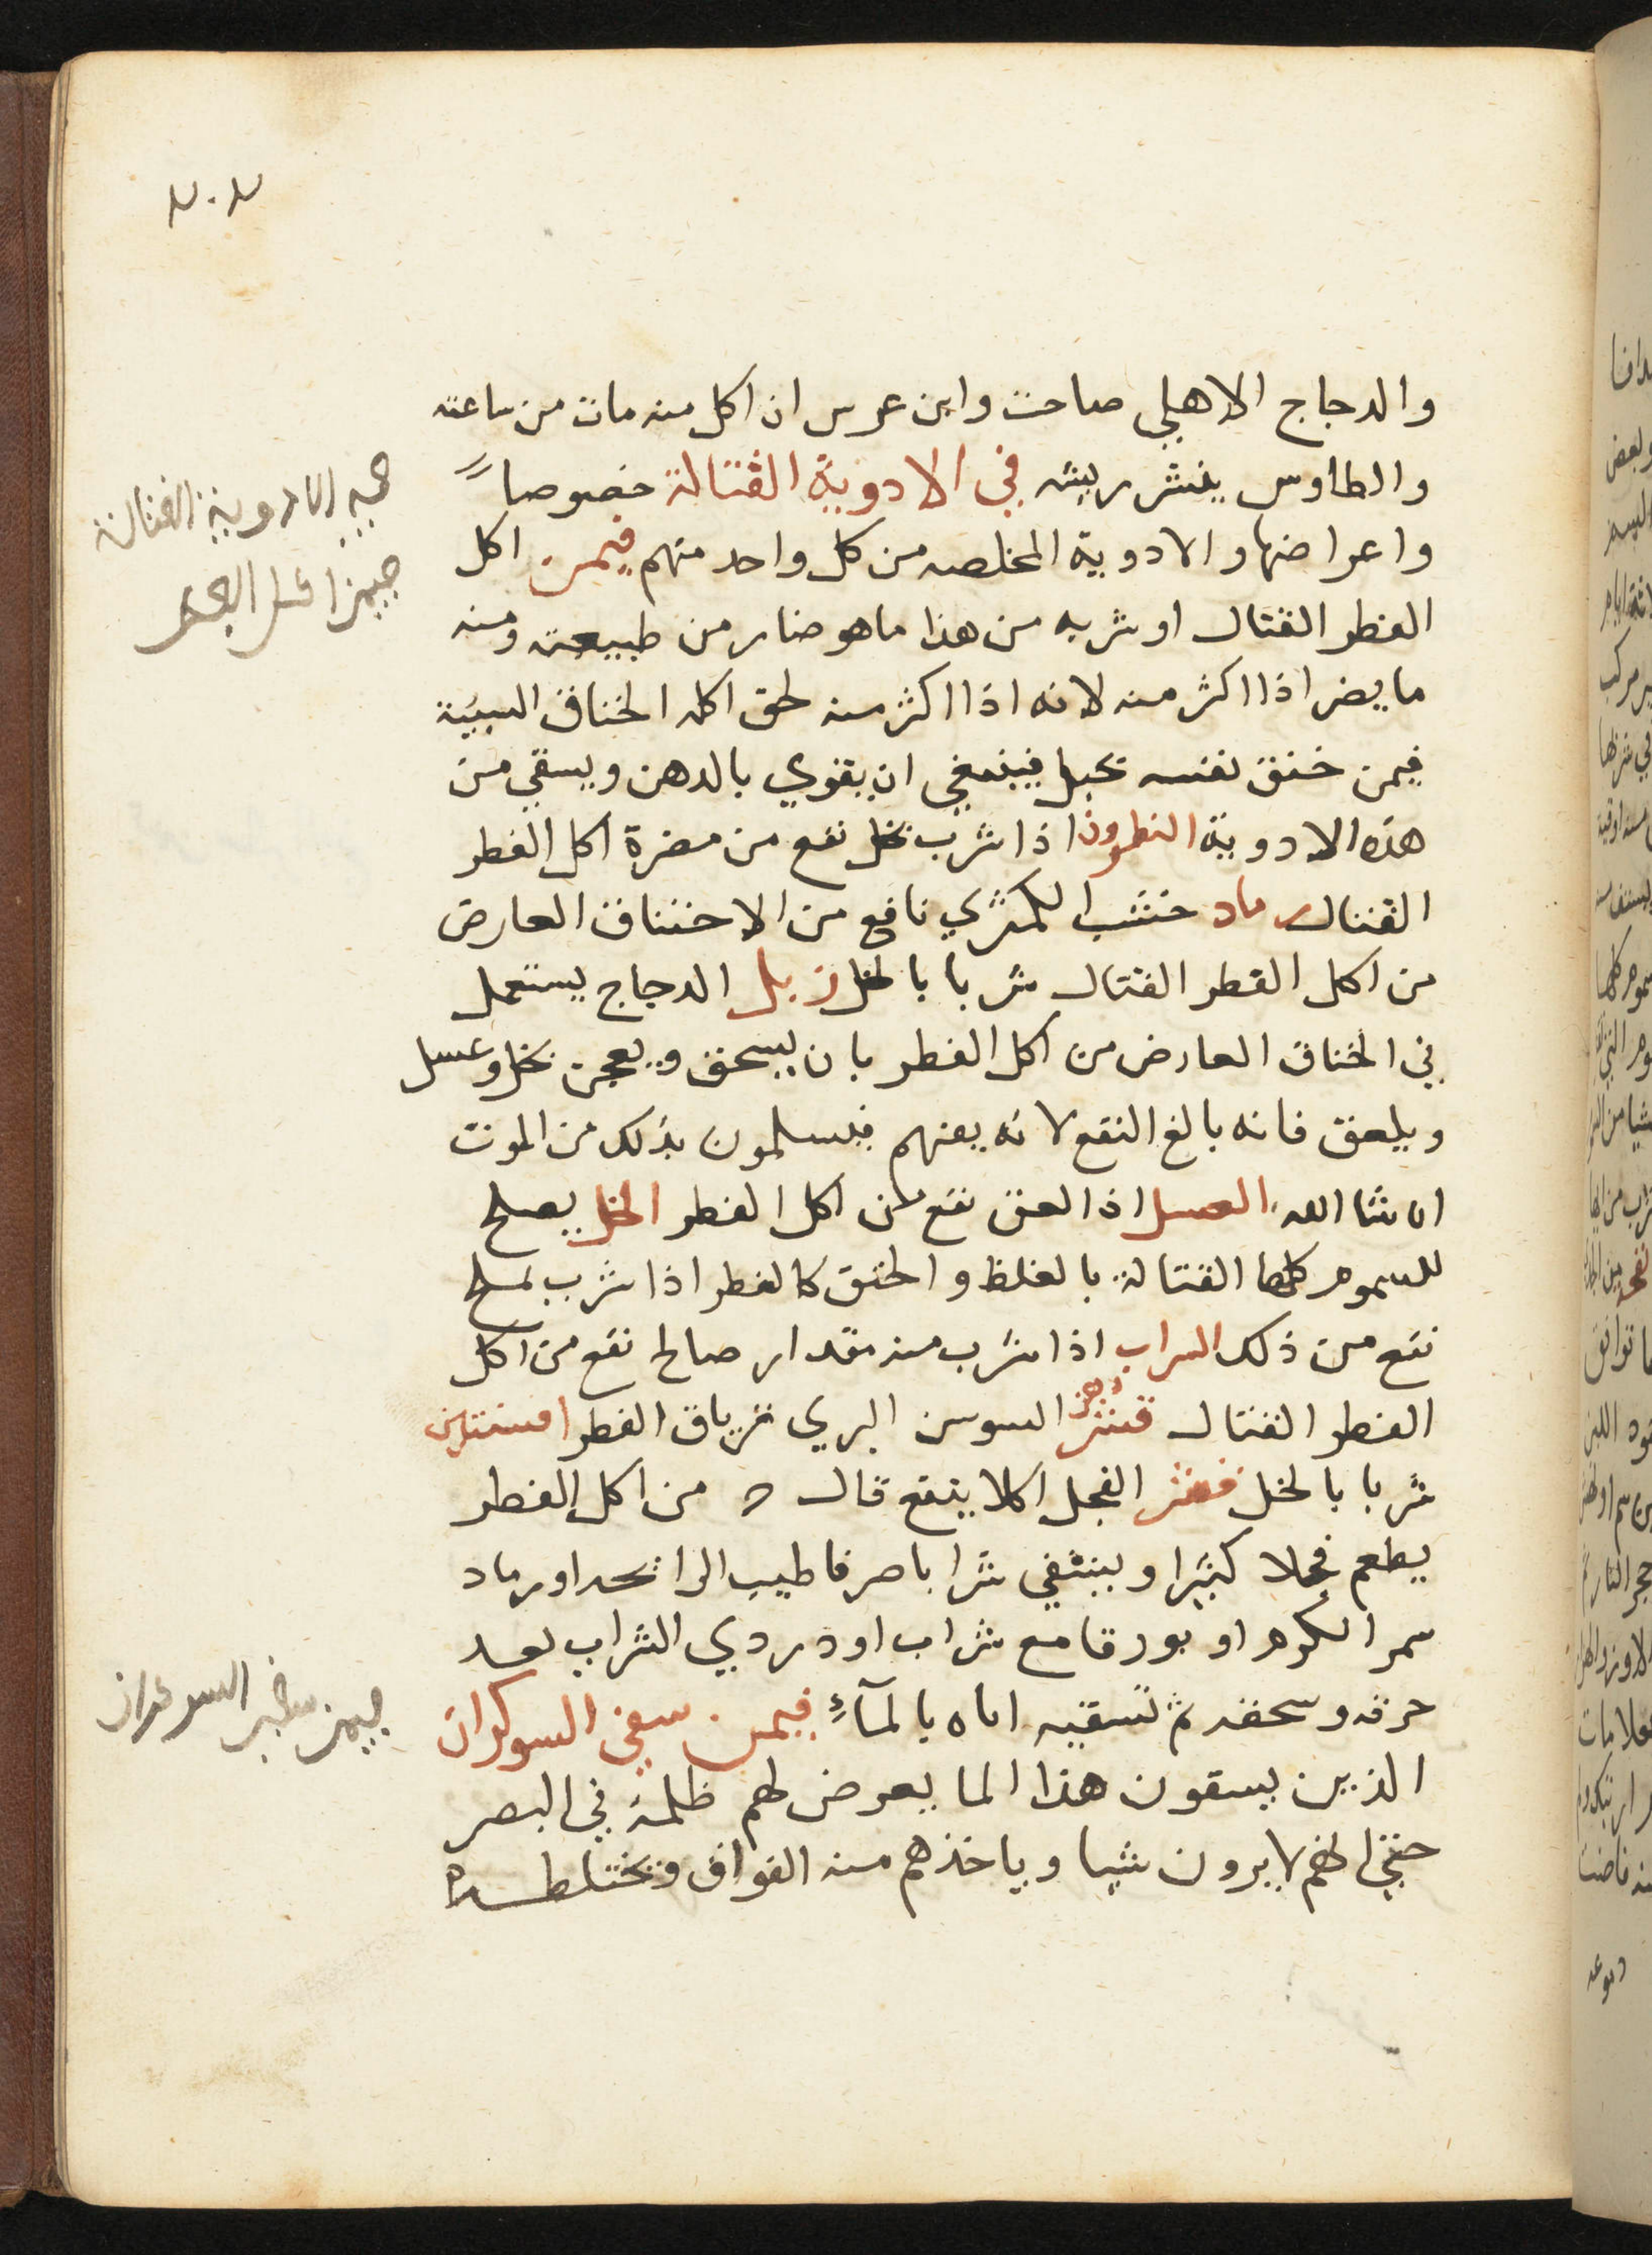 ٧٠٧
والدجاج الاهلي صاحت وابن عرس ان اكل منه مات من ساعته
والطاوس ينشر ريشه في الادوية القتالة خصوصاً
واعراضها والادوية المخلصه من كل واحد منهم فيمن اكل
الفطر القتال او شربه من هذا ما هو ضار من طبيعته ومنه
ما يضر اذا اكثر منه لانه اذا اكثر منه لحق اكله الخناق الشبيه
فيمن خنق نفسه بحبل فينبغي ان يقوي بالدهن ويسقي من
هذه الادوية النطرون اذا شرب بخل نفع من مضرة اكل الفطر
القتال رماد خشب الكمثري نافع من الاختناق العارض
من اكل الفطر القتال شربا بالخل زبل الدجاج يستعمل
في الخناق العارض من اكل الفطر بان يسحق ويعجن بخل وعسل
ويلعق فانه بالغ النفع لانه يقيهم فيسلمون بذلك من الموت
ان شا الله العسل اذا لعق نفع من اكل الفطر الخل يصلح
للسموم كلها القتالة بالغلظ والخنق كالفطر اذا شرب بملح
نفع من ذلك الشراب اذا شرب منه مقدار صالح نفع من اكل
الفطر القتال قشر السوسن البري ترياق الفطر افسنتين
شربا بالخل قشر الفجل اكلا ينفع قال من اكل الفطر
يطعم فجلا كثيرا ويسقي شرابا صرفا طيب الرائحه او رماد
الكرم او بورقا مع شراب او دردي الشراب بعد
حرقه وسحقه ثم تسقيه اياه بالمآءِ فيمن سقي السوكران
الذين يسقون هذا الما يعرض لهم ظلمة في البصر
حتي انهم لا يرون شيا وياخذهم منه الفواق وتختلط
في الادوية القتالة
فيمن اكل الفطر
فيمن سقي السوكران